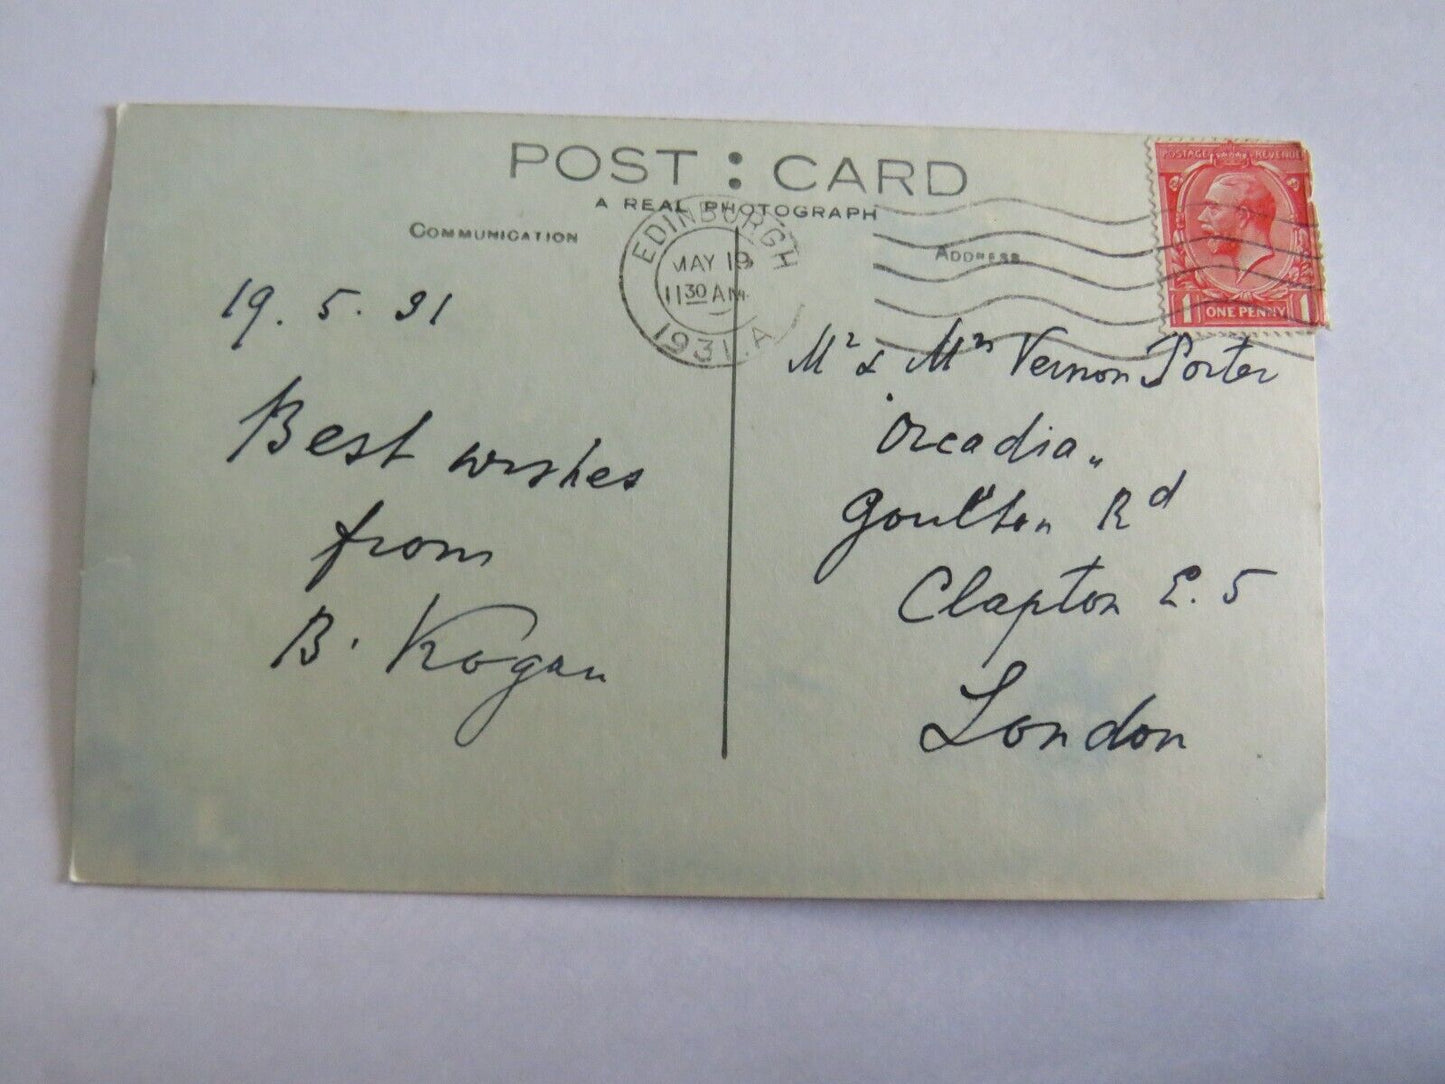 POST : CARD
A REAL PHOTOGRAPH
COMMUNICATION
ADDRESS
EDINBURGH
MAY 19
11 30 AM
1931. A
POSTAGE REVENUE
1 ONE PENNY 1
19. 5. 31
Best wishes
from
B. Kogan
Mr & Mrs Vernon Porter
"Arcadia"
Goulton Rd
Clapton E. 5
London